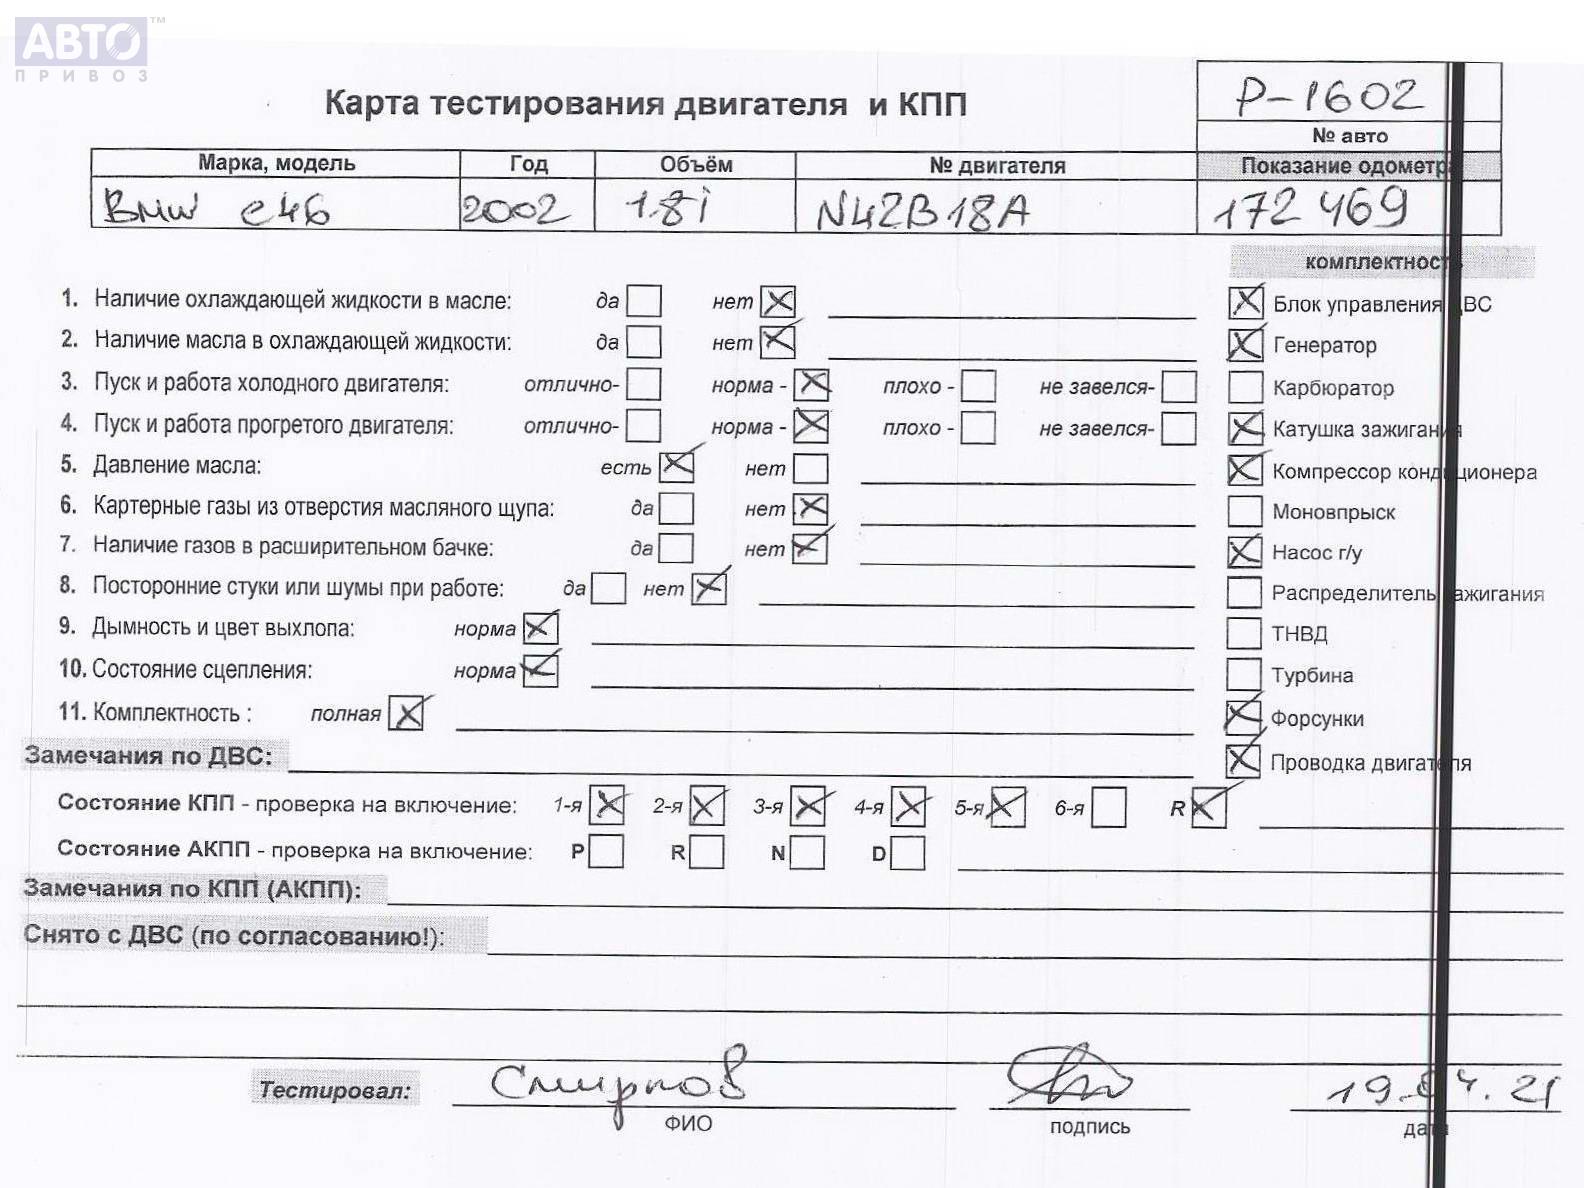 АВТО™
ПРИВОЗ
Карта тестирования двигателя и КПП
P-1602
№ авто
Марка, модель Год Объём № двигателя Показание одометра
BMW e46 2002 1.8i N42B18A 172 469
комплектность
1. Наличие охлаждающей жидкости в масле: да нет Блок управления ДВС
2. Наличие масла в охлаждающей жидкости: да нет Генератор
3. Пуск и работа холодного двигателя: отлично- норма - плохо - не завелся- Карбюратор
4. Пуск и работа прогретого двигателя: отлично- норма - плохо - не завелся- Катушка зажигания
5. Давление масла: есть нет Компрессор кондиционера
6. Картерные газы из отверстия масляного щупа: да нет Моновпрыск
7. Наличие газов в расширительном бачке: да нет Насос г/у
8. Посторонние стуки или шумы при работе: да нет Распределитель зажигания
9. Дымность и цвет выхлопа: норма ТНВД
10. Состояние сцепления: норма Турбина
11. Комплектность : полная Форсунки
Замечания по ДВС: Проводка двигателя
Состояние КПП - проверка на включение: 1-я 2-я 3-я 4-я 5-я 6-я R
Состояние АКПП - проверка на включение: P R N D
Замечания по КПП (АКПП):
Снято с ДВС (по согласованию!):
Тестировал: Смирнов 19.04.21
ФИО подпись дата